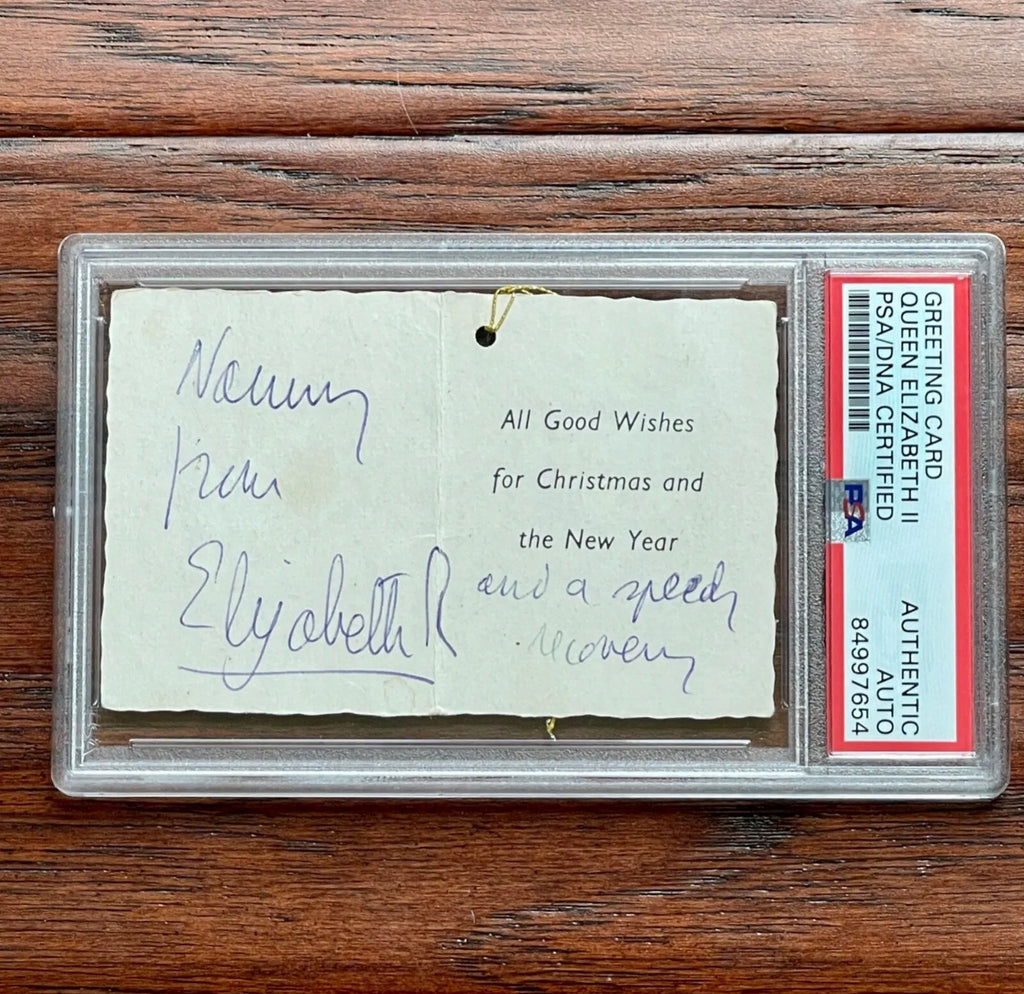 Nanny
from
Elizabeth R
All Good Wishes
for Christmas and
the New Year
and a speedy
recovery
GREETING CARD
QUEEN ELIZABETH II
PSA/DNA CERTIFIED
PSA
AUTHENTIC
AUTO
84997654